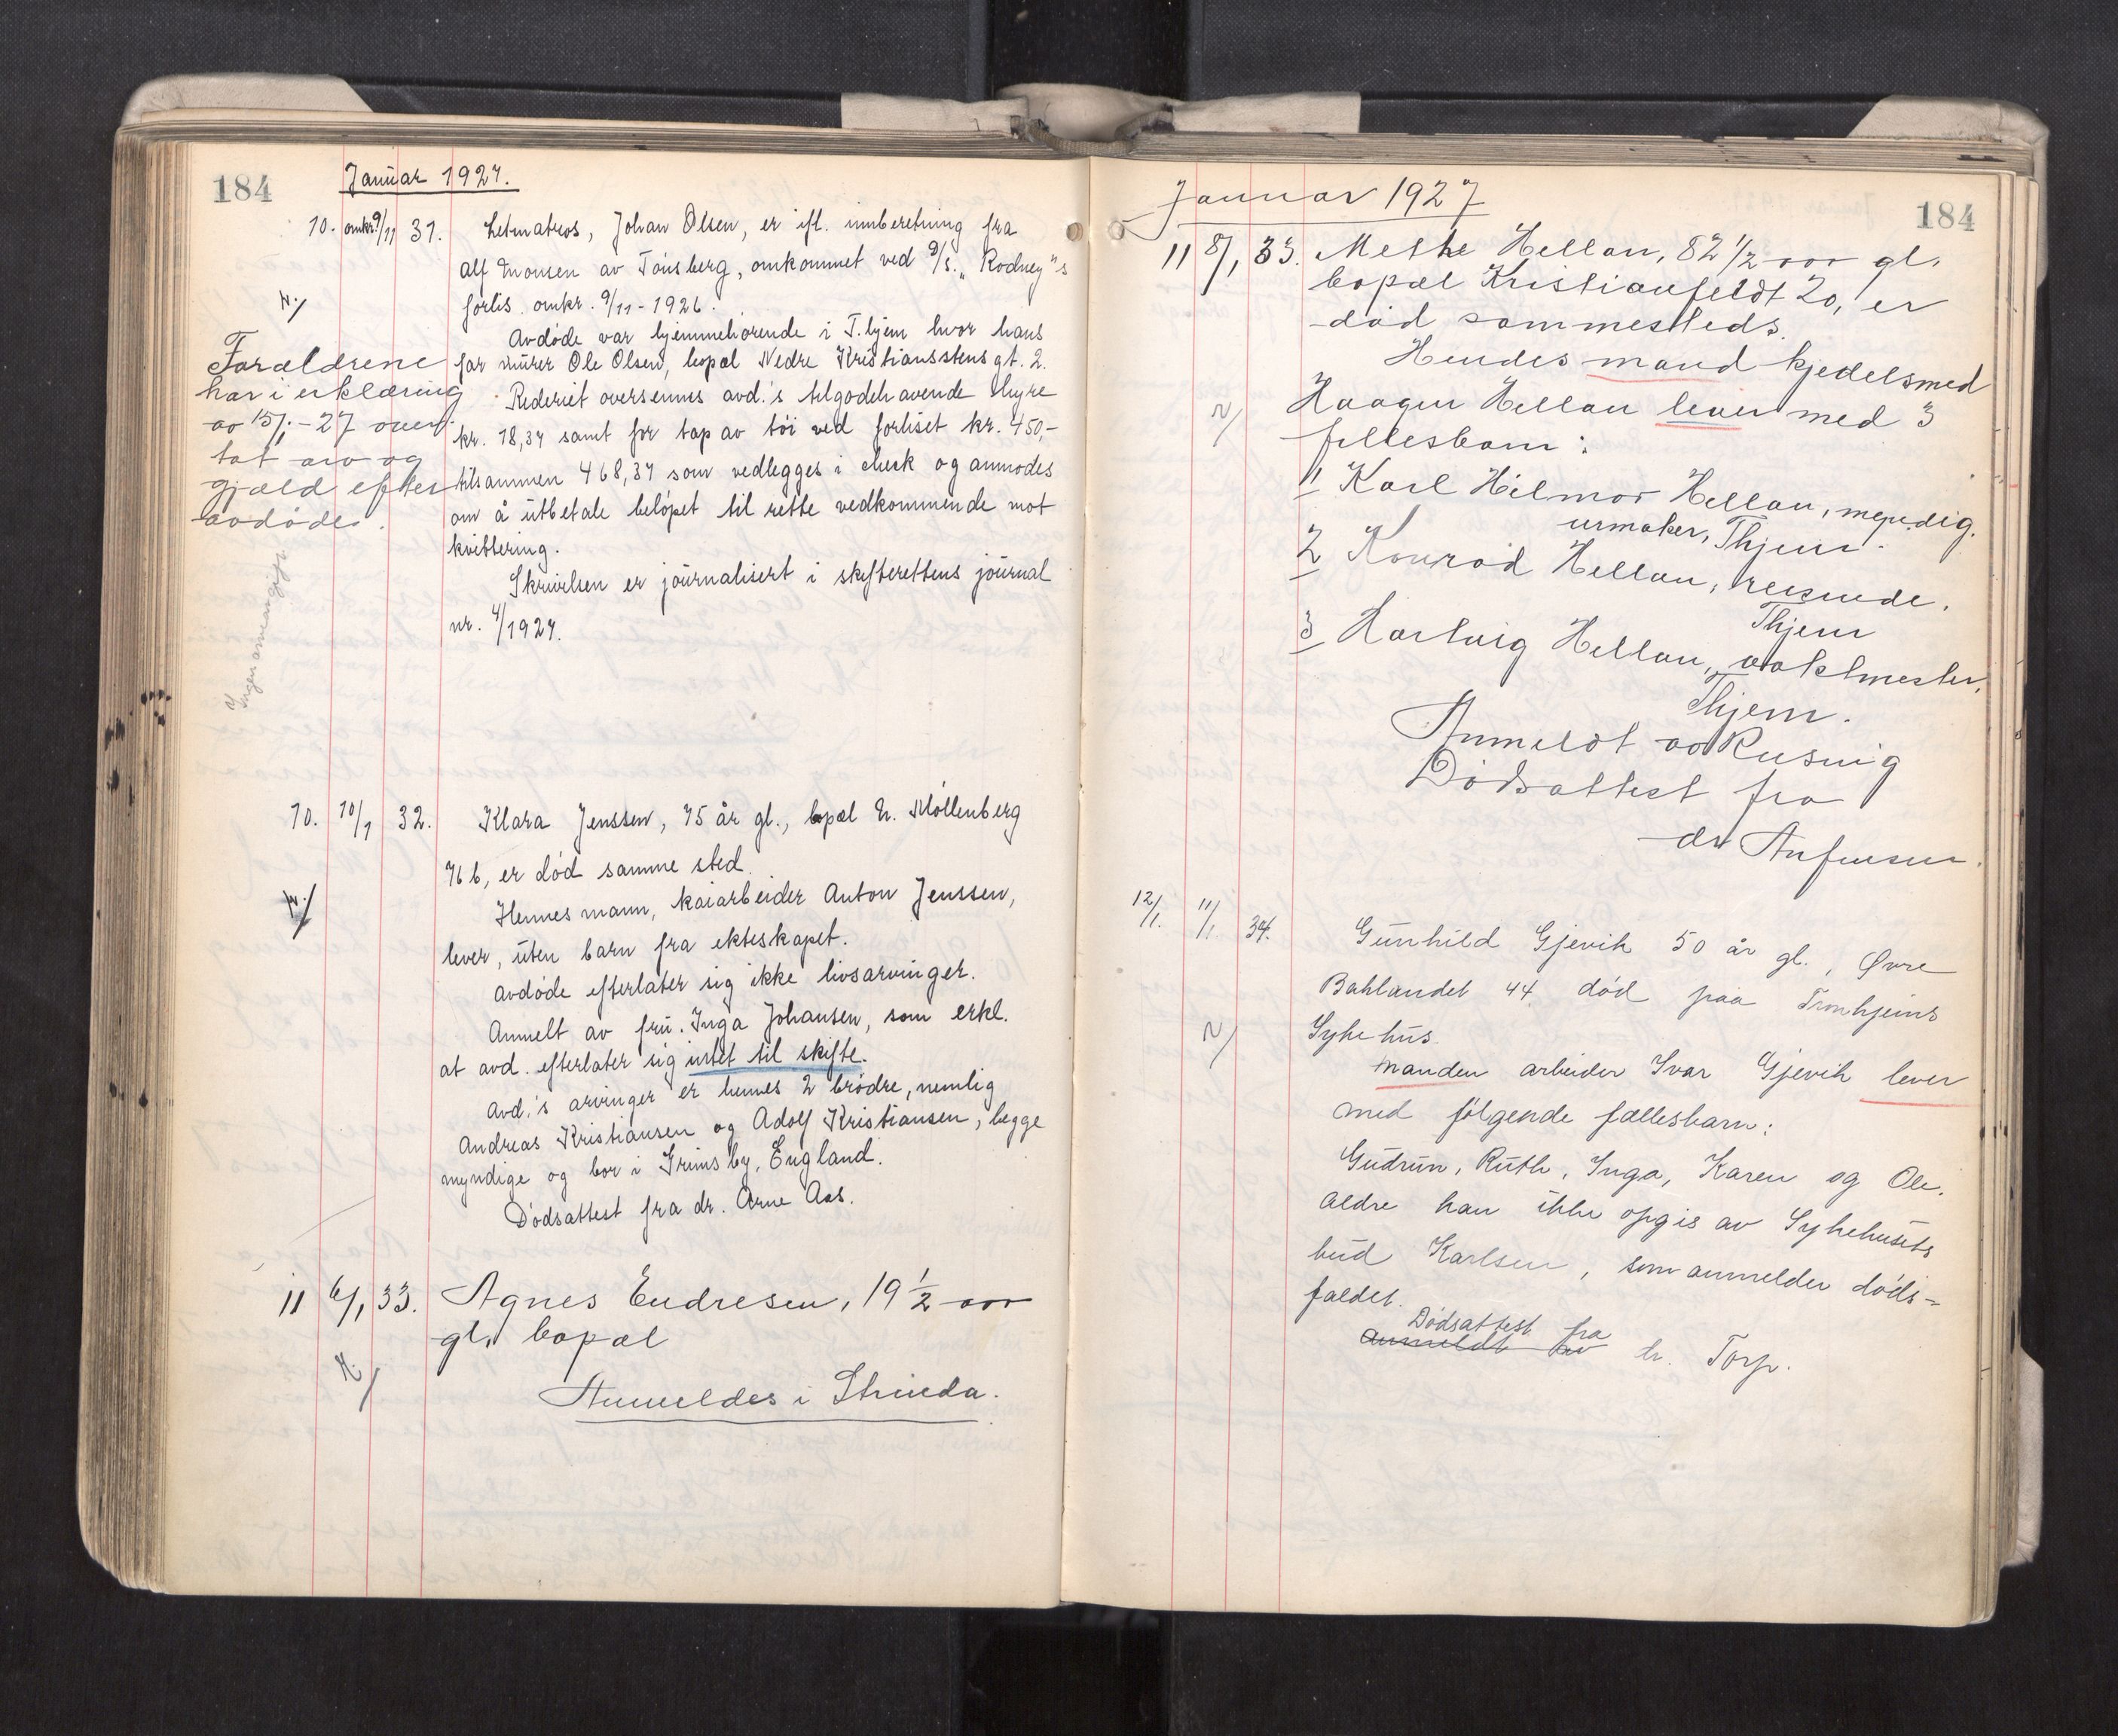 184
Januar 1927.
10. omkr. 9/11 31. Letmatros, Johan Olsen, er ifl. innberetning fra
Alf Monsen av Tønsberg, omkommet ved D/S. "Rodney"s
forlis omkr. 9/11-1926.
N/
Avdøde var hjemmehørende i T.hjem hvor hans
far murer Ole Olsen, bopæl Nedre Kristianstensgt. 2.
Rederiet oversennes avd.'s tilgodehavende hyre
kr. 18,37 samt for tap av tøi ved forliset kr. 450,-
tilsammen 468,37 som vedlegges i check og anmodes
om å utbetale beløpet til rette vedkommende mot
kvittering.
Skrivelsen er journalisert i skifterettens journal
nr. 4/1927.
Forældrene
har i erklæring
av 15/1-27 over-
tat arv og
gjæld efter
avdøde.
Ingen arveavgift
10. 10/1 32. Klara Jenssen, 75 år gl., bopæl N. Møllenberg
76 b, er død samme sted.
N/
Hennes mann, kaiarbeider Anton Jenssen,
lever, uten barn fra ekteskapet.
Avdøde efterlater sig ikke livsarvinger.
Anmelt av fru. Inga Johansen, som erkl.
at avd. efterlater sig intet til skifte.
Avd.'s arvinger er hennes 2 brødre, nemlig
Andreas Kristiansen og Adolf Kristiansen, begge
myndige og bor i Grimsby, England.
Dødsattest fra dr. Arne Aas.
11 6/1 33. Agnes Endresen, 19 1/2 aar
gl. bopæl
N/
Anmeldes i Strinda.
184
Januar 1927
11 8/1 33. Methe Hellan, 82 1/2 aar gl.
bopæl Kristianfeldt 20, er
død sammesteds.
Hendes mand kjedelsmed
N/
Haagen Hellan lever med 3
fellesbarn:
1 Karl Hilmar Hellan, myndig.
urmaker, Thjem.
2 Konrad Hellan, reisende.
Thjem
3 Hartvig Hellan, vaktmester,
Thjem.
Anmeldt av Rusnig
Dødsattest fra
dr Anfinsen.
12/1. 11/1 34. Gunhild Gjevik 50 år gl., Øvre
Baklandet 44 død paa Tronhjems
N/
Sykehus.
Manden arbeider Ivar Gjevik lever
med følgende fællesbarn:
Gudrun, Ruth, Inga, Karen og Ole.
Aldre kan ikke opgis av Sykehusets
bud Karlsen, som anmelder døds-
faldet.
Dødsattest fra
anmeldt av dr. Torp.